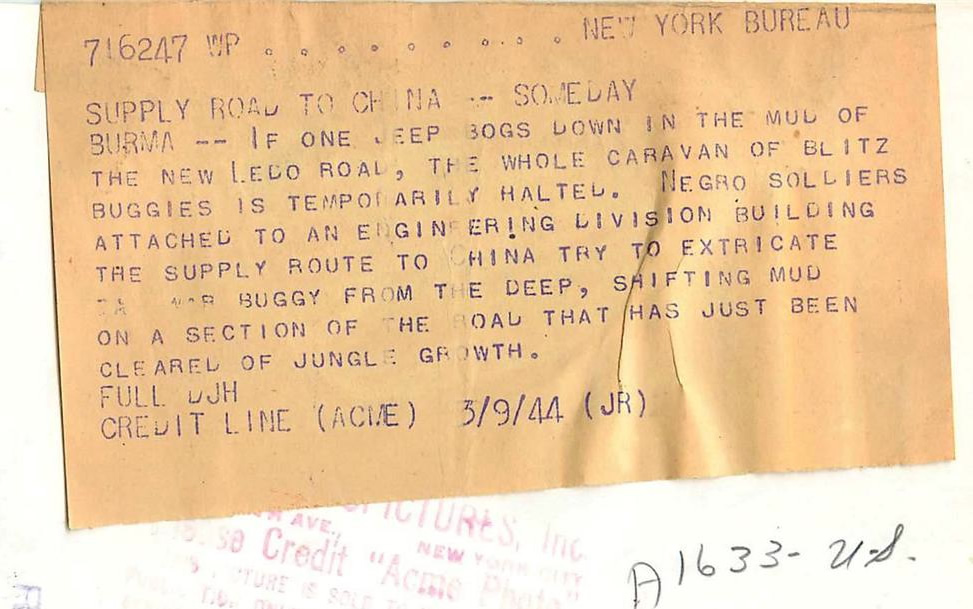 716247 WP . . . . . . . . . . NEW YORK BUREAU
SUPPLY ROAD TO CHINA -- SOMEDAY
BURMA -- IF ONE JEEP BOGS DOWN IN THE MUD OF
THE NEW LEDO ROAD, THE WHOLE CARAVAN OF BLITZ
BUGGIES IS TEMPORARILY HALTED. NEGRO SOLDIERS
ATTACHED TO AN ENGINEERING DIVISION BUILDING
THE SUPPLY ROUTE TO CHINA TRY TO EXTRICATE
BUGGY FROM THE DEEP, SHIFTING MUD
ON A SECTION OF THE ROAD THAT HAS JUST BEEN
CLEARED OF JUNGLE GROWTH.
FULL DJH
CREDIT LINE (ACME) 3/9/44 (JR)
PICTURES, Inc.
AVE.,
NEW YORK CITY
Credit "Acme Photo"
IS SOLD
A1633- U.S.